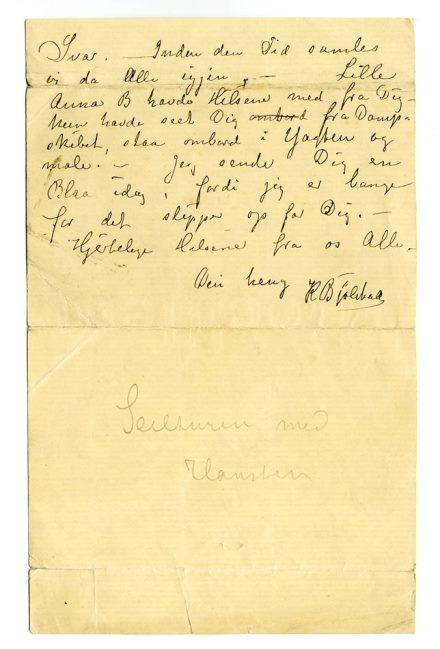 Svar. — Inden den Tid samles
vi da Alle igjen, — Lille
Anna B havde Hilsene med fra Dig –
hun havde seet Dig ombord fra Damp-
skibet, staa ombord i Yagten og
male. – Jeg sender Dig en
Blaa idag, fordi jeg er bange
for det slipper op for Dig. –
Hjertelige Hilsener fra os Alle.
Din heng
Seilturen med
Hansten